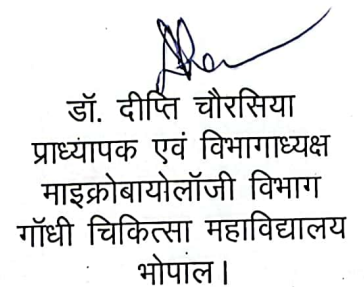 डॉ. दीप्ति चौरसिया
प्राध्यापक एवं विभागाध्यक्ष
माइक्रोबायोलॉजी विभाग
गॉधी चिकित्सा महाविद्यालय
भोपाल।